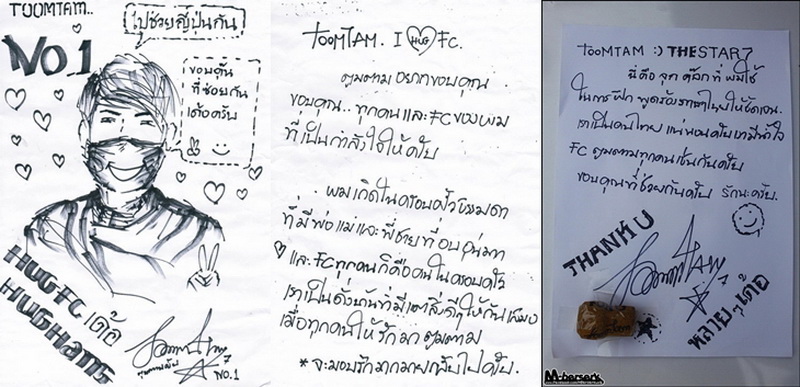 TOOMTAM..
NO.1
ไปช่วยญี่ปุ่นกัน
ขอบคุ๊น
ที่ช่อยกัน
เด้อครับ
HUGFC เด้อ
HUGHaus
7
NO.1
TOOMTAM. I HUG FC.
ตูมตาม อยากขอบคุณ
ขอบคุณ.. ทุกคน และ FC ของผม
ที่เป็นกำลังใจให้ครับ
. ผมเกิดในครอบครัวธรรมดา
ที่มีพ่อแม่และพี่ชายที่อบอุ่นมาก
และ FC ทุกคนก็คือคนในครอบครัว
เราเป็นดั่งบ้านที่มีแต่สิ่งดีๆให้กันเสมอ
เมื่อทุกคนให้รักมา ตูมตาม
* จะมอบรักมากมายกลับไปครับ.
TOOMTAM :) THESTAR7
นี่คือ จุก ก๊อกที่ ผมใช้
ในการฝึก พูดร้องภาษาไทยให้ชัดเจน.
เราเป็นคนไทย แน่นอนครับเรามีน้ำใจ
FC ตูมตามทุกคนเช่นกันครับ
ขอบคุณที่ช่วยกันครับ รักนะครับ.
THANK U
7
หลายๆเด้อ
M-berserk